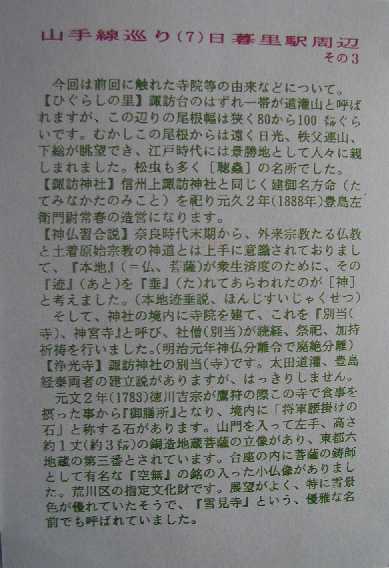 山手線巡り(7)日暮里駅周辺
その3
今回は前回に触れた寺院等の由来などについて。
【ひぐらしの里】諏訪台のはずれ一帯が道灌山と呼ば
れますが、この辺りの尾根幅は狭く80から100㍍ぐら
いです。むかしこの尾根からは遠く日光、秩父連山、
下総が眺望でき、江戸時代には景勝地として人々に親
しまれました。松虫も多く[聴蟲]の名所でした。
【諏訪神社】信州上諏訪神社と同じく建御名方命(た
てみなかたのみこと)を祀り元久2年(1888年)豊島左
衛門尉常春の造営になります。
【神仏習合説】奈良時代末期から、外来宗教たる仏教
と土着原始宗教の神道とは上手に意識されておりまし
て、『本地』(=仏、菩薩)が衆生済度のために、その
『迹』(あと)を『垂』(た)れてあらわれたのが[神]
と考えました。(本地迹垂説、ほんじすいじゃくせつ)
そして、神社の境内に寺院を建て、これを『別当(
寺)、神宮寺』と呼び、社僧(別当)が読経、祭祀、加持
祈祷を行いました。(明治元年神仏分離令で廃絶分離)
【浄光寺】諏訪神社の別当(寺)です。太田道灌、豊島
経泰両者の建立説がありますが、はっきりしません。
元文2年(1783)徳川吉宗が鷹狩の際この寺で食事を
摂った事から『御膳所』となり、境内に「将軍腰掛けの
石」と称する石があります。山門を入って左手、高さ
約1丈(約3㍍)の銅造地蔵菩薩の立像があり、東都六
地蔵の第三番とされています。台座の内に菩薩の鋳師
として有名な『空無』の銘の入った小仏像がありまし
た。荒川区の指定文化財です。展望がよく、特に雪景
色が優れていたそうで、『雪見寺』という、優雅な名
前でも呼ばれていました。